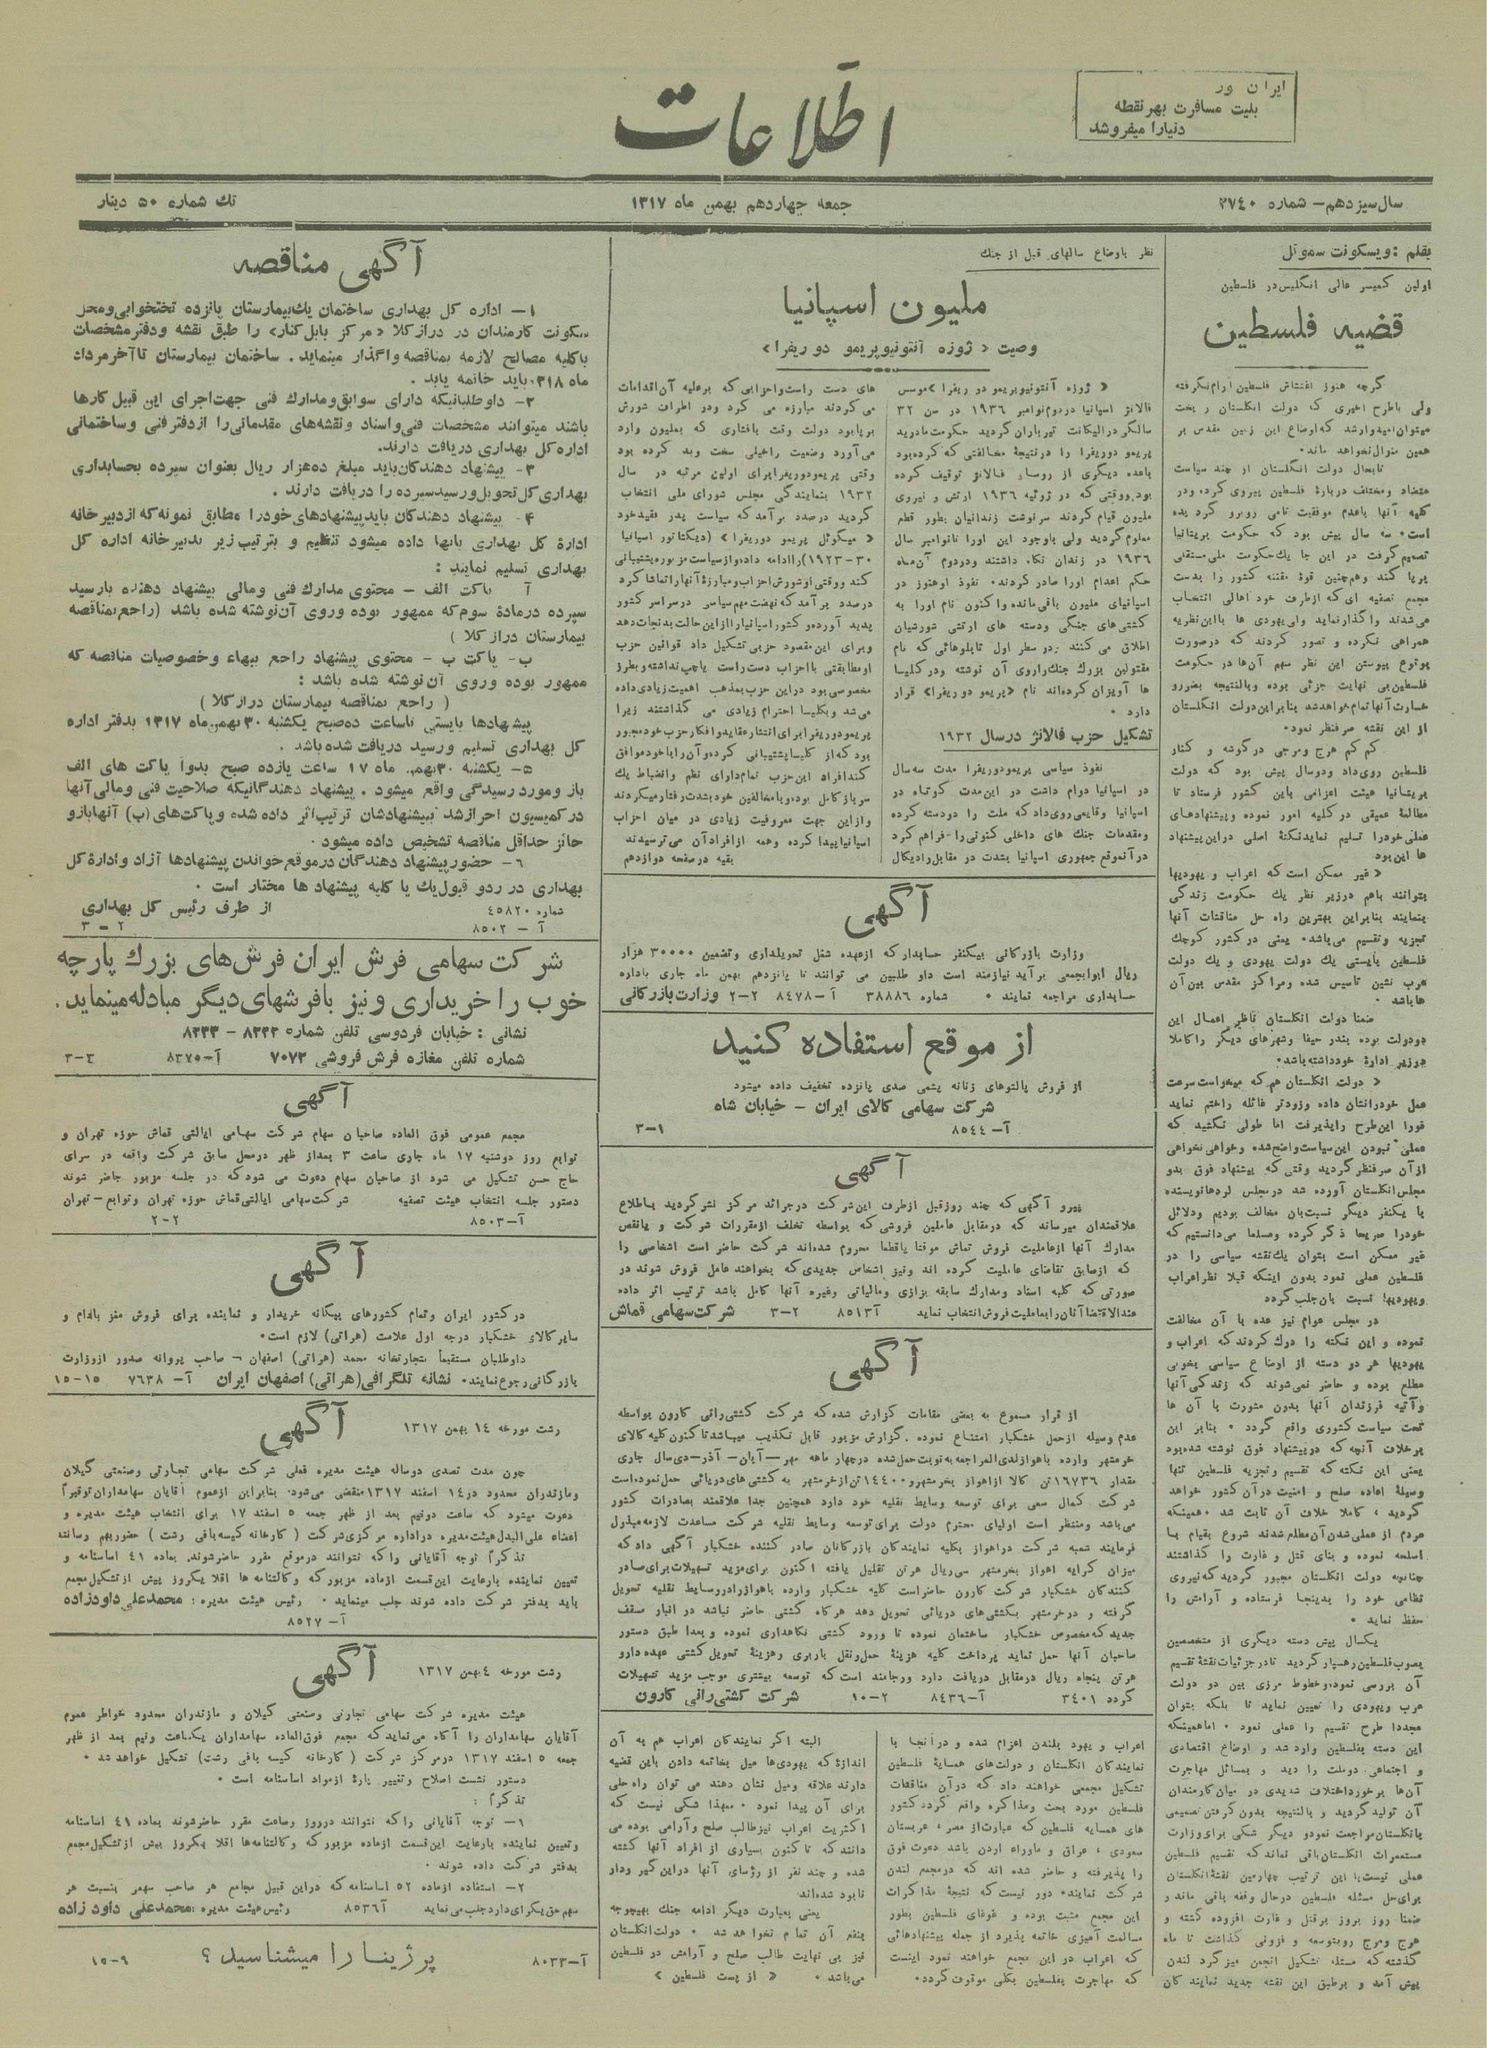 ایران ور
بلیت مسافرت بهر نقطه
دنیا را میفروشد
اطلاعات
سال سیزدهم - شماره ۲۷۴۰
جمعه چهاردهم بهمن ماه ۱۳۱۷
تك شماره ۵۰ دینار
بقلم : ویسکونت سموئل
اولین کمیسر عالی انگلیس در فلسطین
قضیه فلسطین
گرچه هنوز اغتشاش فلسطین آرام نگرفته
ولی باطرح اخیری که دولت انگلستان ریخت
میتوان امیدوار شد که اوضاع این زمین مقدس بر
همین منوال نخواهد ماند.
تابحال دولت انگلستان از چند سیاست
متضاد ومختلف دربارهٔ فلسطین پیروی کرده ودر
کلیه آنها باعدم موفقیت تامی روبرو گردیده
است. سه سال پیش بود که حکومت بریتانیا
تصمیم گرفت در این جا یك حکومت ملی مستقلی
برپا کند وهمچنین قوهٔ مقننه کشور را بدست
مجمع تصفیه ای که از طرف خود اهالی انتخاب
می‌شدند واگذار نماید ولی یهودی ها با این نظریه
همراهی نکرده و تصور کردند که درصورت
بوقوع پیوستن این نظر سهم آن‌ها در حکومت
فلسطین بی نهایت جزئی بوده وبالنتیجه بضرر و
خسارت آنها تمام خواهد شد بنابراین دولت انگلستان
از این نقشه صرفنظر نمود.
کم کم هرج ومرجی در گوشه و کنار
فلسطین روی‌داد ودوسال پیش بود که دولت
بریتانیا هیئت اعزامی باین کشور فرستاد تا
مطالعهٔ عمیقی در کلیه امور نموده وپیشنهادهای
عملی خودرا تسلیم نماید نکتهٔ اصلی دراین پیشنهاد
ها این بود
« غیر ممکن است که اعراب و یهودیها
بتوانند باهم درزیر نظر یك حکومت زندگی
بنمایند بنابراین بهترین راه حل مناقشات آنها
تجزیه وتقسیم می‌باشد. یعنی دو کشور کوچك
فلسطین بایستی یك دولت یهودی و یك دولت
عرب نشین تاسیس شده ومراکز مقدس بین آن
ها باشد .
ضمنا دولت انگلستان ناظر اعمال این
دودولت بوده بندر حیفا وشهرهای دیگر را کاملا
درزیر ادارهٔ خود داشته باشد.
« دولت انگلستان هم که میخواست سرعت
عمل خودرا نشان داده وزودتر غائله را ختم نماید
فورا این طرح را پذیرفت اما طولی نکشید که
عملی نبودن این سیاست واضح شده وخواهی نخواهی
از آن صرفنظر گردید وقتی که پیشنهاد فوق بدو
مجلس انگلستان آورده شد در مجلس لردها نویسنده
با یکنفر دیگر نسبت بآن مخالف بودیم ودلائل
خودرا صریحا ذکر کرده ومسلما می‌دانستیم که
غیر ممکن است بتوان یك نقشه سیاسی را در
فلسطین عملی نمود بدون اینکه قبلا نظر اعراب
ویهودیها نسبت بآن جلب گردد
در مجلس عوام نیز عده با آن مخالفت
نموده و این نکته را درك کردند که اعراب و
یهودیها هر دو دسته از اوضاع سیاسی بخوبی
مطلع بوده و حاضر نمی‌شوند که زندگی آنها
وآتیه فرزندان آنها بدون مشورت با آن ها
تحت سیاست کشوری واقع گردد . بنابر این
برخلاف آنچه که درپیشنهاد فوق نوشته شده بود
یعنی این نکته که تقسیم وتجزیه فلسطین تنها
وسیلهٔ اعاده صلح و امنیت در آن کشور خواهد
گردید ، کاملا خلاف آن ثابت شد . همینکه
مردم از عملی شدن آن مطلع شدند شروع بقیام با
اسلحه نموده و بنای قتل و غارت را گذاشتند
چنانچه دولت انگلستان مجبور گردید که نیروی
نظامی خود را بدینجا فرستاده و آرامش را
حفظ نماید .
یکسال پیش دسته دیگری از متخصصین
بصوب فلسطین رهسپار گردید تادر جزئیات نقشهٔ تقسیم
آن بررسی نموده وخطوط مرزی بین دو دولت
عرب ویهودی را تعیین نماید تا بلکه بتوان
مجددا طرح تقسیم را عملی نمود . اما همینکه
این دسته بفلسطین وارد شد و اوضاع اقتصادی
و اجتماعی دوملت را دید و بمسائل مهاجرت
آن‌ها برخورد اختلاف شدیدی در میان کارمندان
آن تولید گردید و بالنتیجه بدون گرفتن تصمیمی
بانگلستان مراجعت نمود و دیگر شکی برای وزارت
مستعمرات انگلستان باقی نماند که تقسیم فلسطین
عملی نیست با این ترتیب چهارمین نقشهٔ انگلستان
برای حل مسئله فلسطین درحال وقفه باقی ماند و
ضمنا روز بروز برقتل و غارت افزوده گشته و
هرج ومرج روبتوسعه و فزونی گذاشت تا ماه
گذشته که مسئله تشکیل انجمن میز گرد لندن
پیش آمد و برطبق این نقشه جدید نمایندگان
اعراب و یهود بلندن اعزام شده و در آنجا با
نمایندگان انگلستان و دولت‌های همسایهٔ فلسطین
تشکیل مجمعی خواهند داد که در آن مناقشات
فلسطین مورد بحث ومذاکره واقع گردد کشور
های همسایه فلسطین که عبارت از مصر ، عربستان
سعودی ، عراق و ماوراء اردن باشد دعوت فوق
را پذیرفته و حاضر شده اند که درمجمع لندن
شرکت نمایند. دور نیست که نتیجهٔ مذاکرات
این مجمع مثبت بوده و غوغای فلسطین بطور
مسالمت آمیزی خاتمه پذیرد از جمله پیشنهادهائی
که اعراب در این مجمع خواهند نمود اینست
که مهاجرت بفلسطین بکلی موقوف گردد.
البته اگر نمایندگان اعراب هم به آن
اندازهٔ که یهودی‌ها میل بخاتمه دادن باین قضیه
دارند علاقه ومیل نشان دهند می توان راه حلی
برای آن پیدا نمود . معهذا شکی نیست که
اکثریت اعراب نیز طالب صلح و آرامی بوده می
دانند که تا کنون بسیاری از افراد آنها کشته
شده و چند نفر از رؤسای آنها دراین گیر ودار
نابود شده‌اند
یعنی بعبارت دیگر ادامه جنك بهیچوجه
بنفع آن تمام نخواهد شد . دولت انگلستان
نیز بی نهایت طالب صلح و آرامش در فلسطین
می‌باشد . « از پست فلسطین »
نظر باوضاع سالهای قبل از جنك
ملیون اسپانیا
وصیت « ژوزه آنتونیو پریمو دو ریفرا »
« ژوزه آنتونیو پریمو دو ریفرا » موسس
فالانژ اسپانیا در دوم نوامبر ۱۹۳۶ در سن ۳۲
سالگی در الیکانت تیرباران گردید حکومت مادرید
پریمو دوریفرا را درنتیجهٔ مخالفتی که کرده بود
باعده دیگری از روساء فالانژ توقیف کرده
بود ووقتی که در ژوئیه ۱۹۳۶ ارتش و نیروی
ملیون قیام کردند سرنوشت زندانیان بطور قطع
معلوم گردید ولی باوجود این اورا تا نوامبر سال
۱۹۳۶ در زندان نگاه داشتند ودردوم آن‌ماه
حکم اعدام اورا صادر کردند. نفوذ او هنوز در
اسپانیای ملیون باقی مانده و اکنون نام اورا به
کشتی‌های جنگی ودسته های ارتشی شورشیان
اطلاق می کنند . در سطر اول تابلوهائی که نام
مقتولین بزرك جنك را روی آن نوشته ودر کلیسا
ها آویزان کرده‌اند نام « پریمو دو ریفرا » قرار
دارد .
تشکیل حزب فالانژ درسال ۱۹۳۲
نفوذ سیاسی پریمودوریفرا مدت سه سال
در اسپانیا دوام داشت در این مدت کوتاه در
اسپانیا وقایعی روی‌داد که ملت را دودسته کرده
ومقدمات جنك های داخلی کنونی را فراهم کرد
در آنموقع جمهوری اسپانیا بشدت در مقابل رادیکال
های دست راست واحزابی که برعلیه آن اقدامات
می کردند مبارزه می کرد ودر اطراف شورش
برپا بود دولت وقت بافشاری که بملیون وارد
می‌آورد وضعیت راخیلی سخت وبد کرده بود
وقتی پریمودوریفرا برای اولین مرتبه در سال
۱۹۳۲ بنمایندگی مجلس شورای ملی انتخاب
گردید درصدد برآمد که سیاست پدر فقید خود
« میگوئل پریمو دوریفرا » (دیکتاتور اسپانیا
۳۰-۱۹۲۳) را ادامه داده واز سیاست مزبوره پشتیبانی
کند ووقتی او شورش احزاب و مبارزهٔ آنها را تماشا کرد
درصدد برآمد که نهضت مهم سیاسی در سراسر کشور
پدید آورده و کشور اسپانیا را از این حالت بد نجات دهد
وبرای این مقصود حزبی تشکیل داد قوانین حزب
او مطابقتی بااحزاب دست راست یاچپ نداشته و بطرز
مخصوصی بود دراین حزب بمذهب اهمیت زیادی داده
می‌شد وبکلیسا احترام زیادی می گذاشتند زیرا
پریمودوریفرا برای انتشار عقاید وافکار حزب خود مجبور
بود که از کلیسا پشتیبانی کرده و آن را باخود موافق
کند افراد این حزب تمام دارای نظم وانضباط یك
سرباز کامل بوده و با مخالفین خود بشدت رفتار میکردند
واز این جهت معروفیت زیادی در میان احزاب
اسپانیا پیدا کرده وهمه از افراد آن می‌ترسیدند
بقیه در صفحه دوازدهم
آگهی
وزارت بازرگانی بیکنفر حسابدار که از عهده شغل تحویلداری وتضمین ۳۰۰۰۰ هزار
ریال ابوابجمعی برآید نیازمند است داو طلبین می توانند تا پانزدهم بهمن ماه جاری باداره
حسابداری مراجعه نمایند . شماره ۳۸۸۸۶ آ-۸۴۷۸ ۲-۲ وزارت بازرگانی
از موقع استفاده کنید
از فروش پالتوهای زنانه پشمی صدی پانزده تخفیف داده میشود
شرکت سهامی کالای ایران - خیابان شاه
آ-۸۵۴۴ ۳-۱
آگهی
پیرو آگهی که چند روز قبل از طرف این شرکت درجرائد مرکز نشر گردید باطلاع
علاقمندان میرساند که در مقابل عاملین فروشی که بواسطه تخلف از مقررات شرکت و یا نقص
مدارك آنها از عاملیت فروش قماش موقتا یا قطعا محروم شده‌اند شرکت حاضر است اشخاصی را
که از سابق تقاضای عاملیت کرده اند ونیز اشخاص جدیدی که بخواهند عامل فروش شوند در
صورتی که کلیه اسناد ومدارك سابقه بزازی ومالیاتی وغیره آنها کامل باشد ترتیب اثر داده
عندالاقتضا آنان را بعاملیت فروش انتخاب نماید آ۸۵۱۳ ۳-۲ شرکت سهامی قماش
آگهی
از قرار مسموع به بعضی مقامات گزارش شده که شرکت کشتی‌رانی کارون بواسطه
عدم وسیله از حمل خشکبار امتناع نموده . گزارش مزبور قابل تکذیب میباشد تا کنون کلیه کالای
خرمشهر وارده باهواز لدی المراجعه به نوبت حمل شده درچهار ماهه مهر-آبان-آذر-دی سال جاری
مقدار ۱۶۷۳۶ تن کالا از اهواز بخرمشهر و ۱۴۴۰۰ تن از خرمشهر به کشتی های دریائی حمل نموده است
شرکت کمال سعی برای توسعه وسایط نقلیه خود دارد همچنین جدا علاقمند بصادرات کشور
می‌باشد ومنتظر است اولیای محترم دولت برای توسعه وسایط نقلیه شرکت مساعدت لازمه مبذول
فرمایند شعبه شرکت دراهواز بکلیه نمایندگان بازرگانان صادر کننده خشکبار آگهی داد که
میزان کرایه اهواز بخرمشهر سی ریال هرتن تقلیل یافته اکنون برای مزید تسهیلات برای صادر
کنندگان خشکبار شرکت کارون حاضر است کلیه خشکبار وارده باهواز را در وسایط نقلیه تحویل
گرفته و درخرمشهر بکشتی‌های دریائی تحویل دهد هرگاه کشتی حاضر نباشد در انبار سقف
جدید که مخصوص خشکبار ساختمان نموده تا ورود کشتی نگاهداری نموده و بعدا طبق دستور
صاحبان آنها حمل نماید پرداخت کلیه هزینهٔ حمل ونقل باربری وهزینهٔ تحویل کشتی عهده دار و
هرتن پنجاه ریال درمقابل دریافت دارد ورجامند است که توسعه بیشتری موجب مزید تسهیلات
گردد ۳۴۰۱ آ-۸۴۳۶ ۱۰-۲ شرکت کشتی رانی کارون
آگهی مناقصه
۱- اداره کل بهداری ساختمان یك بیمارستان پانزده تختخوابی و محل
سکونت کارمندان در درازکلا « مرکز بابل کنار » را طبق نقشه ودفتر مشخصات
باکلیه مصالح لازمه بمناقصه واگذار مینماید . ساختمان بیمارستان تا آخر مرداد
ماه ۳۱۸. باید خاتمه یابد .
۲- داوطلبانیکه دارای سوابق ومدارك فنی جهت اجرای این قبیل کارها
باشند میتوانند مشخصات فنی و اسناد ونقشه‌های مقدماتی را از دفتر فنی وساختمانی
اداره کل بهداری دریافت دارند.
۳- پیشنهاد دهندگان باید مبلغ ده هزار ریال بعنوان سپرده بحسابداری
بهداری کل تحویل ورسید سپرده را دریافت دارند .
۴- پیشنهاد دهندگان باید پیشنهادهای خودرا مطابق نمونه که از دبیرخانه
ادارهٔ کل بهداری بآنها داده میشود تنظیم و بترتیب زیر بدبیرخانه اداره کل
بهداری تسلیم نمایند :
آ پاکت الف - محتوی مدارك فنی ومالی پیشنهاد دهنده بارسید
سپرده درمادهٔ سوم که ممهور بوده وروی آن نوشته شده باشد (راجع بمناقصه
بیمارستان درازکلا )
ب- پاکت ب - محتوی پیشنهاد راجع ببهاء وخصوصیات مناقصه که
ممهور بوده وروی آن نوشته شده باشد :
( راجع بمناقصه بیمارستان درازکلا )
پیشنهادها بایستی تاساعت ده صبح یکشنبه ۳۰ بهمن ماه ۱۳۱۷ بدفتر اداره
کل بهداری تسلیم ورسید دریافت شده باشد .
۵- یکشنبه ۳۰ بهمن ماه ۱۷ ساعت یازده صبح بدواً پاکت های الف
باز ومورد رسیدگی واقع میشود . پیشنهاد دهندگانیکه صلاحیت فنی ومالی آنها
در کمیسیون احراز شد بپیشنهادشان ترتیب اثر داده شده و پاکت‌های (ب) آنها باز و
حائز حداقل مناقصه تشخیص داده میشود
۶- حضور پیشنهاد دهندگان در موقع خواندن پیشنهادها آزاد واداره کل
بهداری در ردو قبول یك یا کلیه پیشنهاد ها مختار است .
شماره ۴۵۸۲۰ از طرف رئیس کل بهداری
آ-۸۵۰۲ ۳-۲
شرکت سهامی فرش ایران فرش‌های بزرك پارچه
خوب را خریداری و نیز بافرشهای دیگر مبادله مینماید.
نشانی : خیابان فردوسی تلفن شماره ۸۲۲۲ - ۸۲۳۳
شماره تلفن مغازه فرش فروشی ۷۰۷۲ آ-۸۳۷۵ ۳-۳
آگهی
مجمع عمومی فوق العاده صاحبان سهام شرکت سهامی ایالتی قماش حوزه تهران و
توابع روز دوشنبه ۱۷ ماه جاری ساعت ۳ بعداز ظهر درمحل سابق شرکت واقعه در سرای
حاج حسن تشکیل می شود از صاحبان سهام دعوت می شود که در جلسه مزبور حاضر شوند
دستور جلسه انتخاب هیئت تصفیه شرکت سهامی ایالتی قماش حوزه تهران وتوابع-تهران
آ-۸۵۰۳ ۲-۲
آگهی
درکشور ایران وتمام کشورهای بیگانه خریدار و نماینده برای فروش مغز بادام و
سایر کالای خشکبار درجه اول علامت (هراتی) لازم است.
داوطلبان مستقیماً بتجارتخانه محمد (هراتی) اصفهان - صاحب پروانه صدور از وزارت
بازرگانی رجوع نمایند. نشانه تلگرافی (هراتی) اصفهان ایران آ-۷۶۳۸ ۱۵-۱۵
آگهی
رشت مورخه ۱۴ بهمن ۱۳۱۷
چون مدت تصدی دوساله هیئت مدیره فعلی شرکت سهامی تجارتی وصنعتی گیلان
ومازندران محدود در ۱۴ اسفند ۱۳۱۷ منقضی می‌شود. بنابراین از عموم آقایان سهامداران توقیراً
دعوت میشود که ساعت دونیم بعد از ظهر جمعه ۵ اسفند ۱۷ برای انتخاب هیئت مدیره و
اعضاء علی البدل هیئت مدیره دراداره مرکزی شرکت ( کارخانه کیسه بافی رشت ) حضور بهم رسانند
تذکراً توجه آقایانی را که نتوانند درموقع مقرر حاضر شوند. بماده ۴۱ اساسنامه و
تعیین نماینده بارعایت این قسمت از ماده مزبور که وکالتنامه ها اقلا یکروز پیش از تشکیل مجمع
باید بدفتر شرکت داده شوند جلب مینماید . رئیس هیئت مدیره : محمدعلی داودزاده
آ-۸۵۲۷
آگهی
رشت مورخه ۴ بهمن ۱۳۱۷
هیئت مدیره شرکت سهامی تجارتی وصنعتی گیلان و مازندران محدود خواطر عموم
آقایان سهامداران را آگاه می‌نماید که مجمع فوق‌العاده سهامداران یکساعت ونیم بعد از ظهر
جمعه ۵ اسفند ۱۳۱۷ درمرکز شرکت ( کارخانه کیسه بافی رشت) تشکیل خواهد شد .
دستور نشست اصلاح وتغییر پارهٔ از مواد اساسنامه است .
تذکراً :
۱- توجه آقایانی را که نتوانند درروز وساعت مقرر حاضر شوند بماده ۴۱ اساسنامه
وتعیین نماینده بارعایت این قسمت از ماده مزبور که وکالتنامه‌ها اقلا یکروز پیش از تشکیل مجمع
بدفتر شرکت داده شوند .
۲- استفاده از ماده ۵۲ اساسنامه که دراین قبیل مجامع هر صاحب سهمی بنسبت هر
سهم حق یکرای دارد جلب می نماید آ۸۵۳۶ رئیس هیئت مدیره : محمدعلی داود زاده
آ-۸۰۳۳ پرژینا را میشناسید ؟ ۱۵-۹